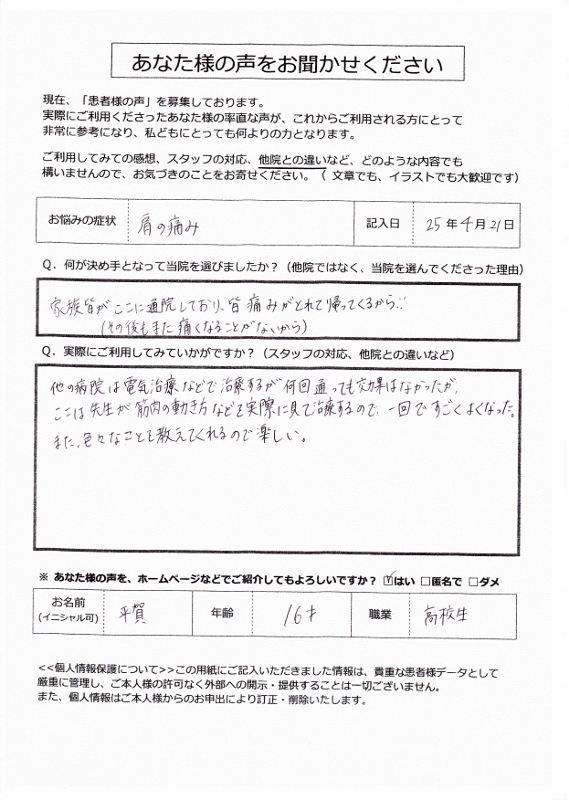 あなた様の声をお聞かせください
現在、「患者様の声」を募集しております。
実際にご利用くださったあなた様の率直な声が、これからご利用される方にとって
非常に参考になり、私どもにとっても何よりの力となります。
ご利用してみての感想、スタッフの対応、他院との違いなど、どのような内容でも
構いませんので、お気づきのことをお寄せください。（ 文章でも、イラストでも大歓迎です）
お悩みの症状 肩の痛み 記入日 25年4月21日
Q．何が決め手となって当院を選びましたか？（他院ではなく、当院を選んでくださった理由）
家族皆がここに通院しており、皆痛みがとれて帰ってくるから。
（その後もまた痛くなることがないから）
Q．実際にご利用してみていかがですか？（スタッフの対応、他院との違いなど）
他の病院は電気治療などで治療するが何回通っても効果はなかったが、
ここは先生が筋肉の動き方などを実際に見て治療するので、一回ですごくよくなった。
また、色々なことを教えてくれるので楽しい。
※ あなた様の声を、ホームページなどでご紹介してもよろしいですか？ ☑はい □匿名で □ダメ
お名前 平賀 年齢 16才 職業 高校生
（イニシャル可）
<<個人情報保護について>>この用紙にご記入いただきました情報は、貴重な患者様データとして
厳重に管理し、ご本人様の許可なく外部への開示・提供することは一切ございません。
また、個人情報はご本人様からのお申出により訂正・削除いたします。